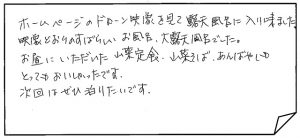 ホームページのドローン映像を見て露天風呂に入り来ました
映像どおりのすばらしいお風呂、大露天風呂でした。
お昼にいただいた山菜定食、山菜そば、あんばやしも
とってもおいしかったです。
次回はぜひ泊りたいです。